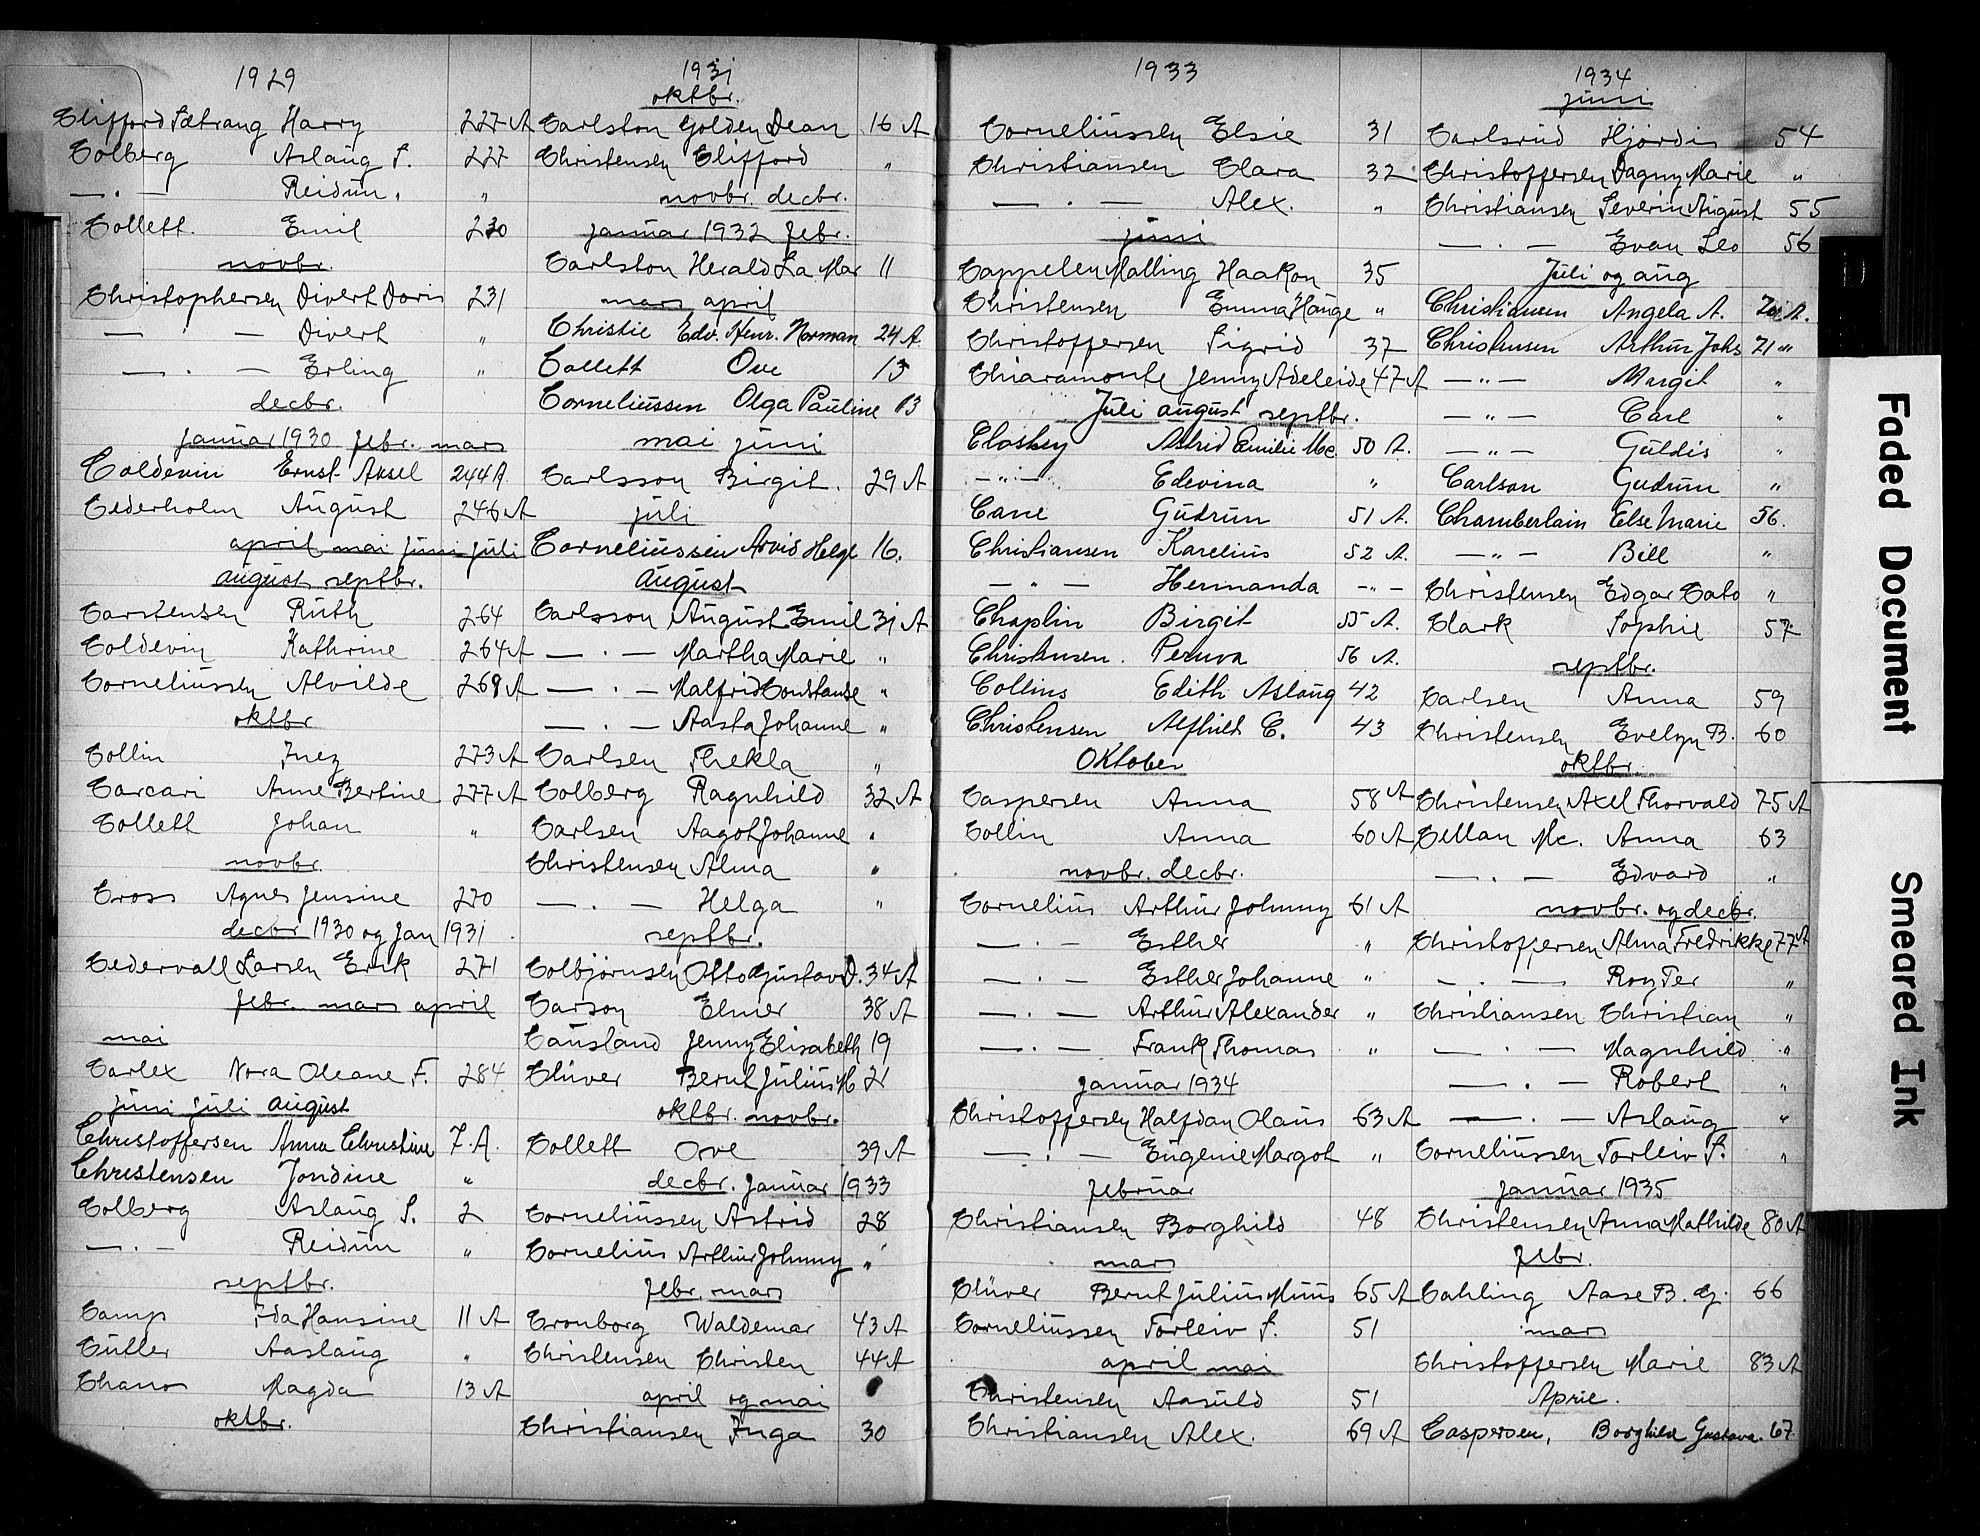 1929
Clifford Sætrang Harry 227 A
Colberg Aslaug S. 227
— . — Reidun. "
Collett. Emil 230
novbr.
Christophersen Divert Doris 231
— . — Divert "
— . — Erling "
decbr.
januar 1930 febr. mars
Coldevin Ernst Aksel 244 A.
Cederholm August 246 A
april mai juni juli
august septbr.
Carstensen Ruth 264
Coldevin Kathrine 264 A
Corneliussen Alvilde 269 A
oktbr
Collin Inez 273 A
Carcari Anne Bertine 277 A
Collett Johan "
novbr.
Cross Agnes Jensine 270
decbr 1930 og Jan 1931
Cedervall Larsen Erik 271
febr. mars april
mai
Carlex Nora Oleane F. 284
juni juli august
Christoffersen Anna Christine 7. A.
Christensen Jondine "
Colberg Aslaug S. 2
— . — Reidun "
septbr.
Camp Ida Hansine 11 A
Cutler Aaslaug "
Chano Magda 13 A
oktbr.
1931
oktbr.
Carlston Golden Dean 16 A
Christensen Clifford "
novbr. decbr.
januar 1932 febr.
Carlston Herald La Mar 11
mars april
Christie Edv. Henr. Norman 24 A.
Collett Ove 13
Corneliussen Olga Pauline 13
mai juni
Carlsson Birgit. 29 A
juli
Corneliussen Arvid Helge 16.
august
Carlsson August Emil 31 A
— . — Martha Marie "
— . — Malfrid Constanse "
— . — Aasta Johanne "
Carlsen Thekla "
Colberg Ragnhild 32 A
Carlsen Aagot Johanne "
Christensen Alma "
— . — Helga "
septbr.
Colbjørnsen Otto Gustav D. 34 A
Carson Elmer 38 A
Causland Jenny Elisabeth 19
Clüver Bernt Julius M 21
oktbr. novbr.
Collett Ove 39 A
decbr. januar 1933
Corneliussen Astrid 28
Cornelius Arthur Johnny "
febr. mars
Cronborg Waldemar 43 A
Christensen Christen 44 A
april og mai
Christiansen Inga 30
1933
Corneliussen Elsie 31
Christiansen Clara 32
— . — Alex. "
juni
Cappelen Malling Haakon 35
Christensen Emma Hauge "
Christoffersen Sigrid 37
Chiaramonte Jenny Adeleide 47 A
Juli august septbr.
Closkey Astrid Emilie Mc 50 A.
— " — Edevina "
Cane Gudrun 51 A.
Christiansen Karelius 52 A.
— " — Hermanda — " —
Chaplin Birgit 55 A.
Christensen. Peruva 56 A.
Collins Edith Aslaug 42
Christensen Alfhild C. 43
Oktober
Caspersen Anna 58 A
Collin Anna 60 A
novbr. decbr.
Cornelius Arthur Johnny 61 A
— . — Esther "
— . — Esther Johanne "
— . — Arthur Alexander "
— . — Frank Thomas "
januar 1934
Christoffersen Halfdan Olaus 63 A
— . — Eugenie Margot "
februar
Christiansen Borghild 48
mars
Clüver Bernt Julius Muus 65 A
Corneliussen Torleiv S. 51
april mai
Christensen Aasuld 51
Christiansen Alex. 69 A
1934
juni
Carlsrud Hjørdis 54
Christoffersen Dagny Marie "
Christiansen Severin August 55
— . — Evan Leo 56
Juli og aug
Christiansen Angela A. 70 A.
Christensen Arthur Johs 71 "
— " — Margit "
— " — Carl "
— " — Guldis "
Carlson Gudrun "
Chamberlain Else Marie 56.
— " — Bill "
Christensen Edgar Cato "
Clark Sophie 57
septbr.
Carlsen Anna 59
Christensen Evelyn B. 60
oktbr.
Christensen Axel Thorvald 75 A
Cellan Mc. Anna 63
— . — Edvard "
novbr. og decbr.
Christoffersen Alma Fredrikke 77 A
— . — Roy Ter "
Christiansen Christian "
— . — Magnhild "
— . — Robert "
— . — Aslaug "
Corneliussen Torleiv S. "
januar 1935
Christensen Anna Mathilde 80 A
febr.
Cahling Aase B. G. 66
mars
Christoffersen Marie 83 A
April.
Caspersen, Borghild Gustava. 67
Faded Document
Smeared Ink